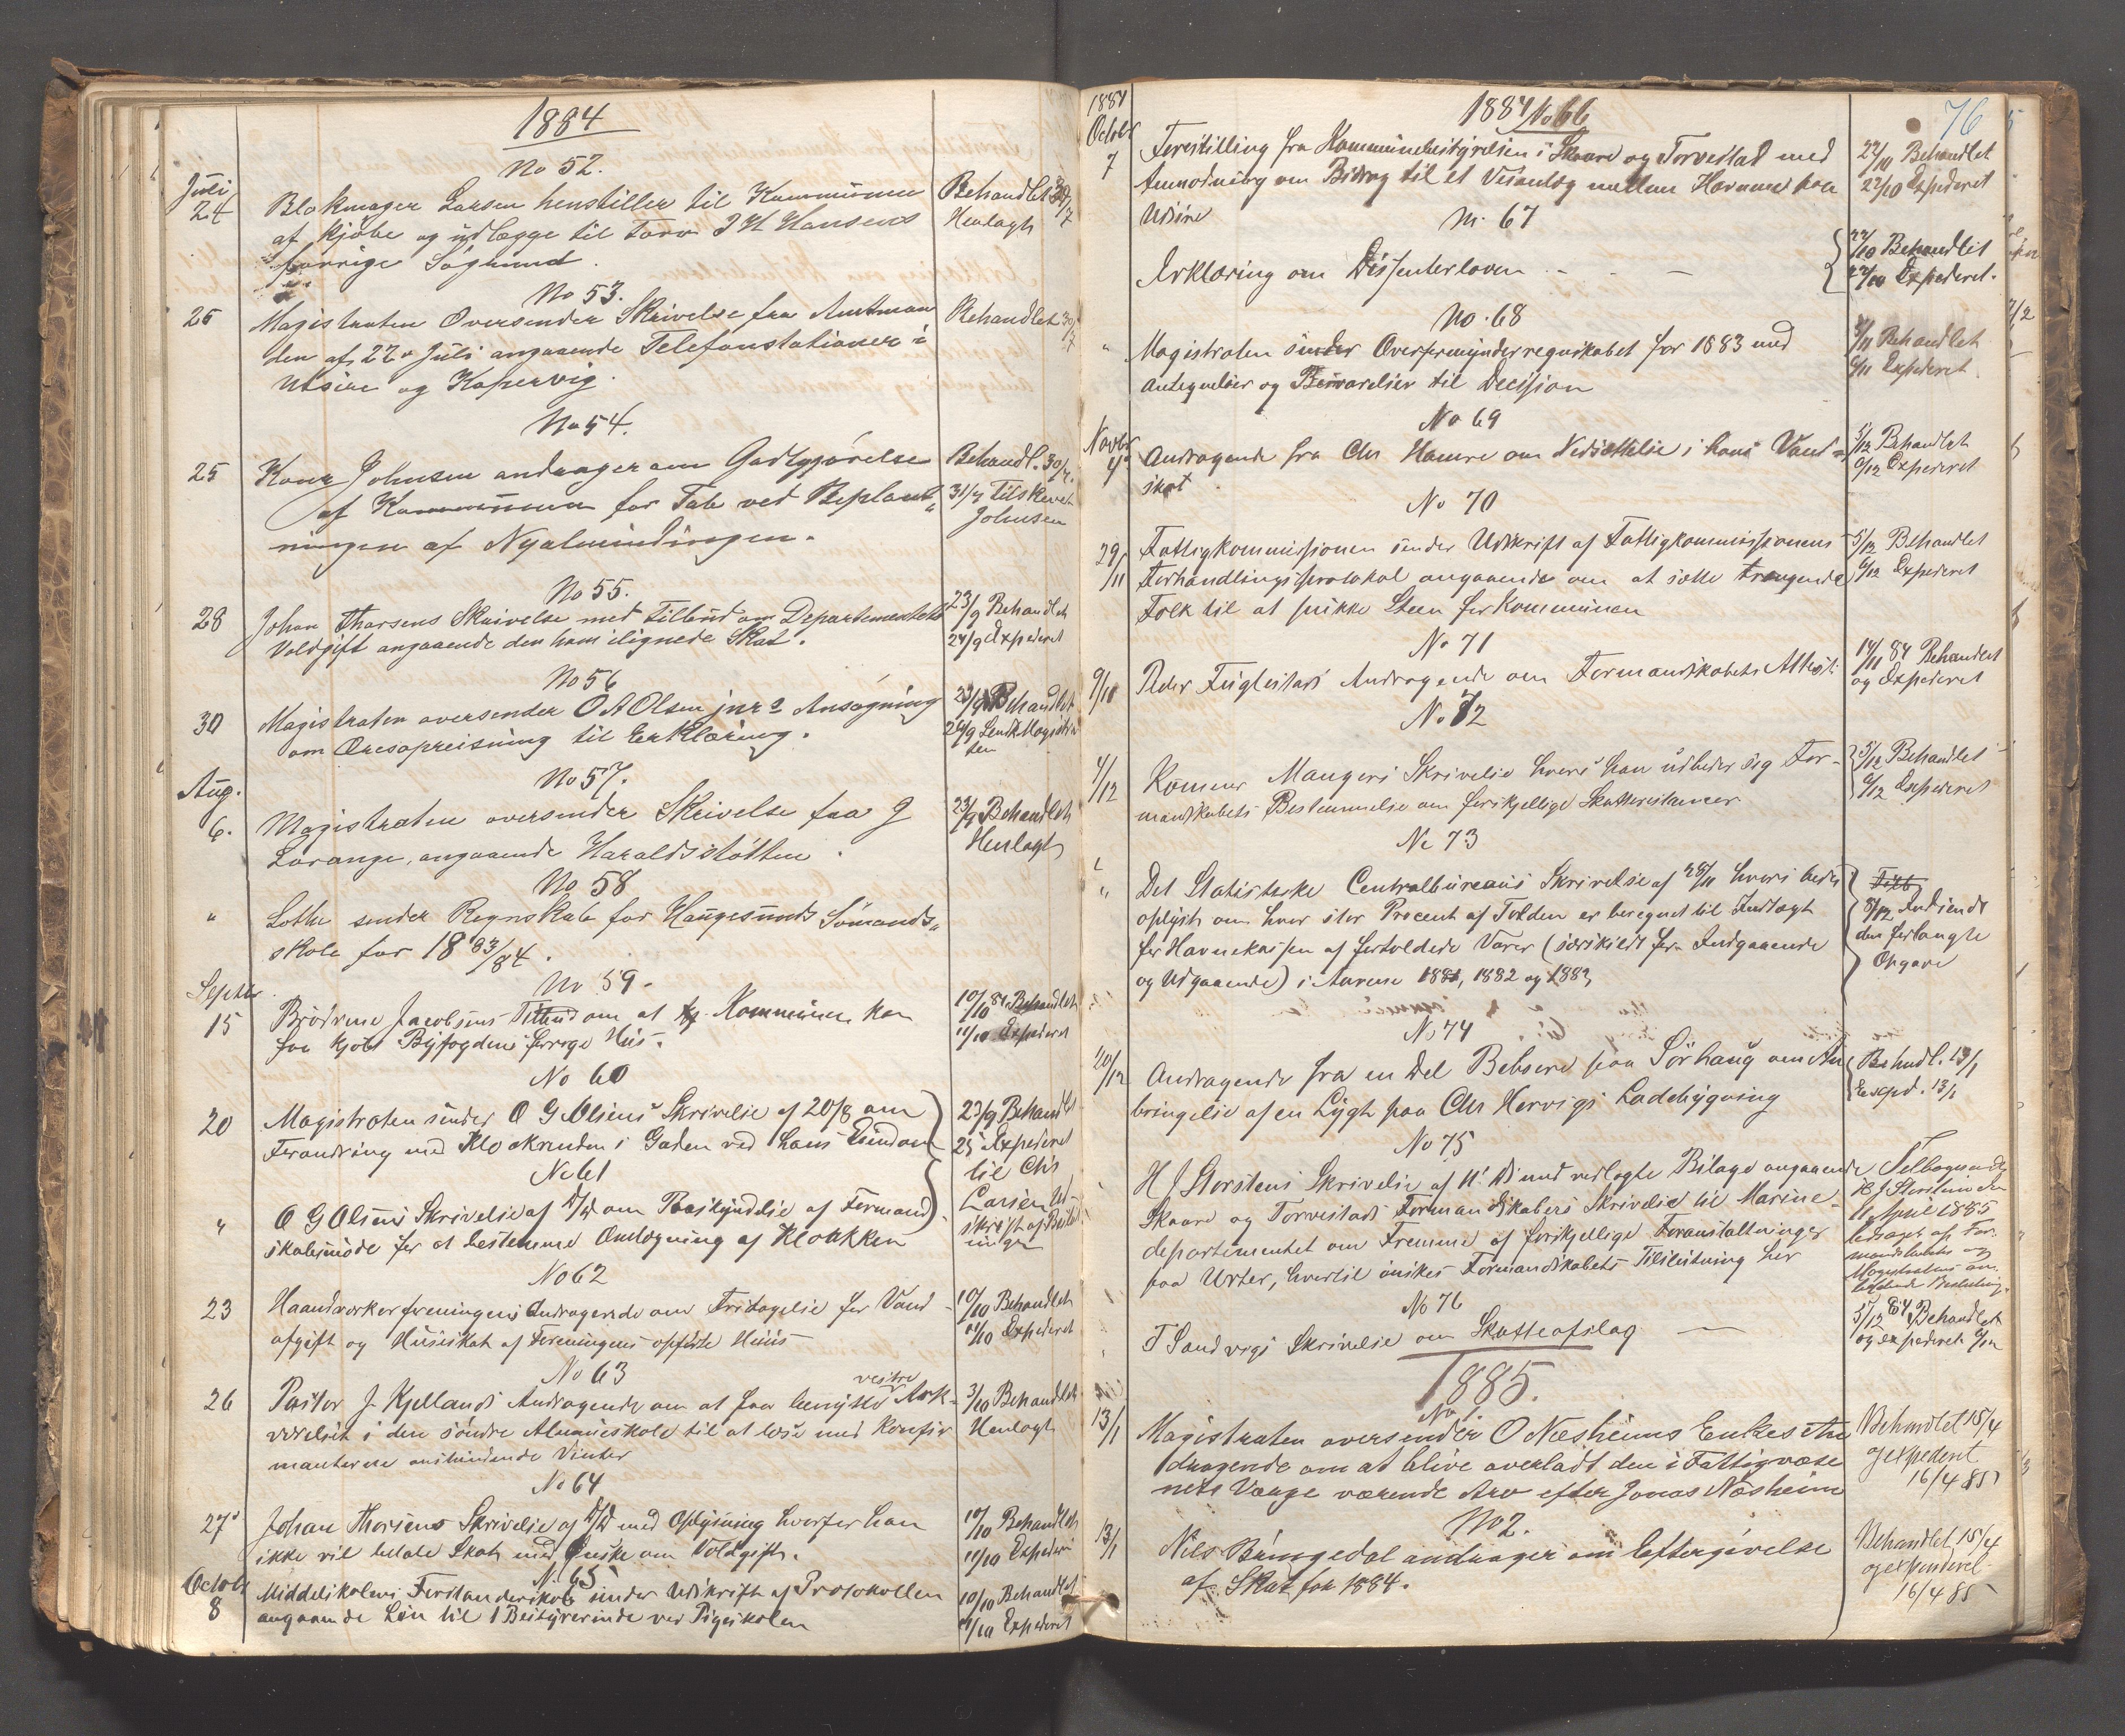 1884
No 52.
Juli
24 Blokmager Larsen henstiller til Kommunen Behandlet 30/7
af kjøbe og udlægge til Torv J H Hansens Henlagt
forrige Søgrund.
No 53.
25 Magistraten Oversender Skrivelse fra Amtman Behandlet 30/7
den af 22 Juli angaaende Telefonstationer i
Utsire og Kopervig.
No 54.
25 Johnsen andrager om Godtgjørelse Behandl. 30/7.
af Kommunen for Tab ved Beplant„ 31/7 Tilskrevet
ningen af Nyalmindingen. Johnsen
No 55.
28 Johan Thorsens Skrivelse med Tilbud om Departementets 23/9 Behandlet
Voldgift angaaende den ham ilignede Skat. 24/9 Expederet
No 56
30 Magistraten oversender O A Olsen jnrs Ansøgning 23/9 Behandlet
om Æresopreisning til Erklæring. 24/9 Sendt Magistra
ten
No 57.
Aug.
6. Magistraten oversender Skrivelse fra J 23/9 Behandlet
Lorange, angaaende Haraldsstøtten. Henlagt
No 58
„ Lothe sender Regnskab for Haugesunds Sømands„
skole for 1883/84.
No 59.
Septbr.
15 Brødrene Jacobsens Tilbud om at Kommunen kan 10/10 84 Behandlet
faa kjøbt Byfogdens forrige Hus. 11/10 Expederet
No 60
20 Magistraten sender O G Olsens Skrivelse af 20/8 om 23/9 Behandlet
Forandring med Kloakrenden i Gaden ved hans Eiendom 25 Expederet
No 61 til Chr
„ O G Olsens Skrivelse af D/D om Paaskyndelse af Formand Larsen Ud-
skabsmøde for at bestemme Omlægning af Kloakken skrift af Beslut
ningen
No 62
23 Haandverkerforeningens Andragende om Fritagelse for Vand 10/10 Behandlet
afgift og Husskat af Foreningens opførte Huus 11/10 Expederet
No 63
vestre
26 Pastor J. Kjellands Andragende om at faa benytte Ark- 3/10 Behandlet
værelset i den søndre Almueskole til at læse med Konfir Henlagt
manterne anstundende Vinter
No 64
27 Johan Thorsens Skrivelse af D/D med Oplysning hvorfor han 10/10 Behandlet
ikke vil betale Skat med Ønske om Voldgift. 11/10 Expederet
No 65
Octobr
8 Middelskolens Forstanderskab sender Udskrift af Protokollen 10/10 Behandlet
angaaende Løn til 1 Bestyrerinde ved Pigeskolen 11/10 Expederet
76
1884
1884 No 66
Octobr
7 Forestilling fra Kommunebestyrelsen i Skaare og Torvestad med 22/10 Behandlet
Anmodning om Bidrag til et Veianlæg mellem Havnene paa 22/10 Expederet
Udsire
No 67
Erklæring om Dissenterloven - - - 22/10 Behandlet
22/10 Expederet.
No. 68
„ Magistraten sender Overformynderregnskabet for 1883 med Behandlet
Antegnelser og Besvarelser til Decission 6/11 Expederet
No 69
Novbr
4 Andragende fra Chr Hamre om Nedsættelse i hans Vand= 5/12 Behandlet
skat 6/12 Expederet
No 70
29/11 Fattigkommissionen sender Udskrift af Fattigkommissionens 5/12 Behandlet
Forhandlingsprotokol angaaende om at sætte trængende 6/12 Expederet
Folk til at pukke Steen for Kommunen
No 71
9/10 Peder Fuglestads Andragende om Formandskabets Attest 14/11 84 Behandlet
og Expederet
No 72
4/12 Kæmner Mangers Skrivelse hvori han udbeder sig For- 5/12 Behandlet
mandskabets Bestemmelse om forskjellige Skatterestancer 6/12 Expederet
No 73
„ Det Statistiske Centralbureaus Skrivelse af 28/11 hvori bedes
oplyst om hvor stor Procent af Tolden er beregnet til Indtægt 8/12 Indsendt
for Havnekassen af fortoldede Varer (særskildt for Indgaaende den forlangte
og Udgaaende) i Aarene 1881, 1882 og 1883 Opgave
No 74
20/12 Andragende fra en Del Beboere paa Sørhaug om An Behndl. 13/1
bringelse af en Lygt paa Chr Hervigs Ladebygning Exped. 13/1
No 75
H J Storstens Skrivelse af 11' Ds med vedlagte Bilage angaaende Tilbagesendt
Skaare og Torvestads Formandskabers Skrivelse til Marine- H J Storstein den
departementet om Fremme af forskjellige Foranstaltninger 11 April 1885
paa Urter, hvortil ønskes Formandskabets Tilslutning her ledsaget af For-
mandskabets og
Magistratens om-
No 76
T Sandvigs Skrivelse om Skatteafslag — 5/12 84 Behandlet
og expederet 6/12
1885.
No 1
13/1 Magistraten oversender O Næsheims Enkes An Behandlet 15/4
dragende om at blive overladt den i Fattigvæse og expederet
nets Værge værende Arv efter Jonas Næsheim 16/4 85
No 2.
13/1 Nils Bringedal andrager om Eftergivelse Behandlet 15/4
af Skat for 1884. og expederet
16/4 85